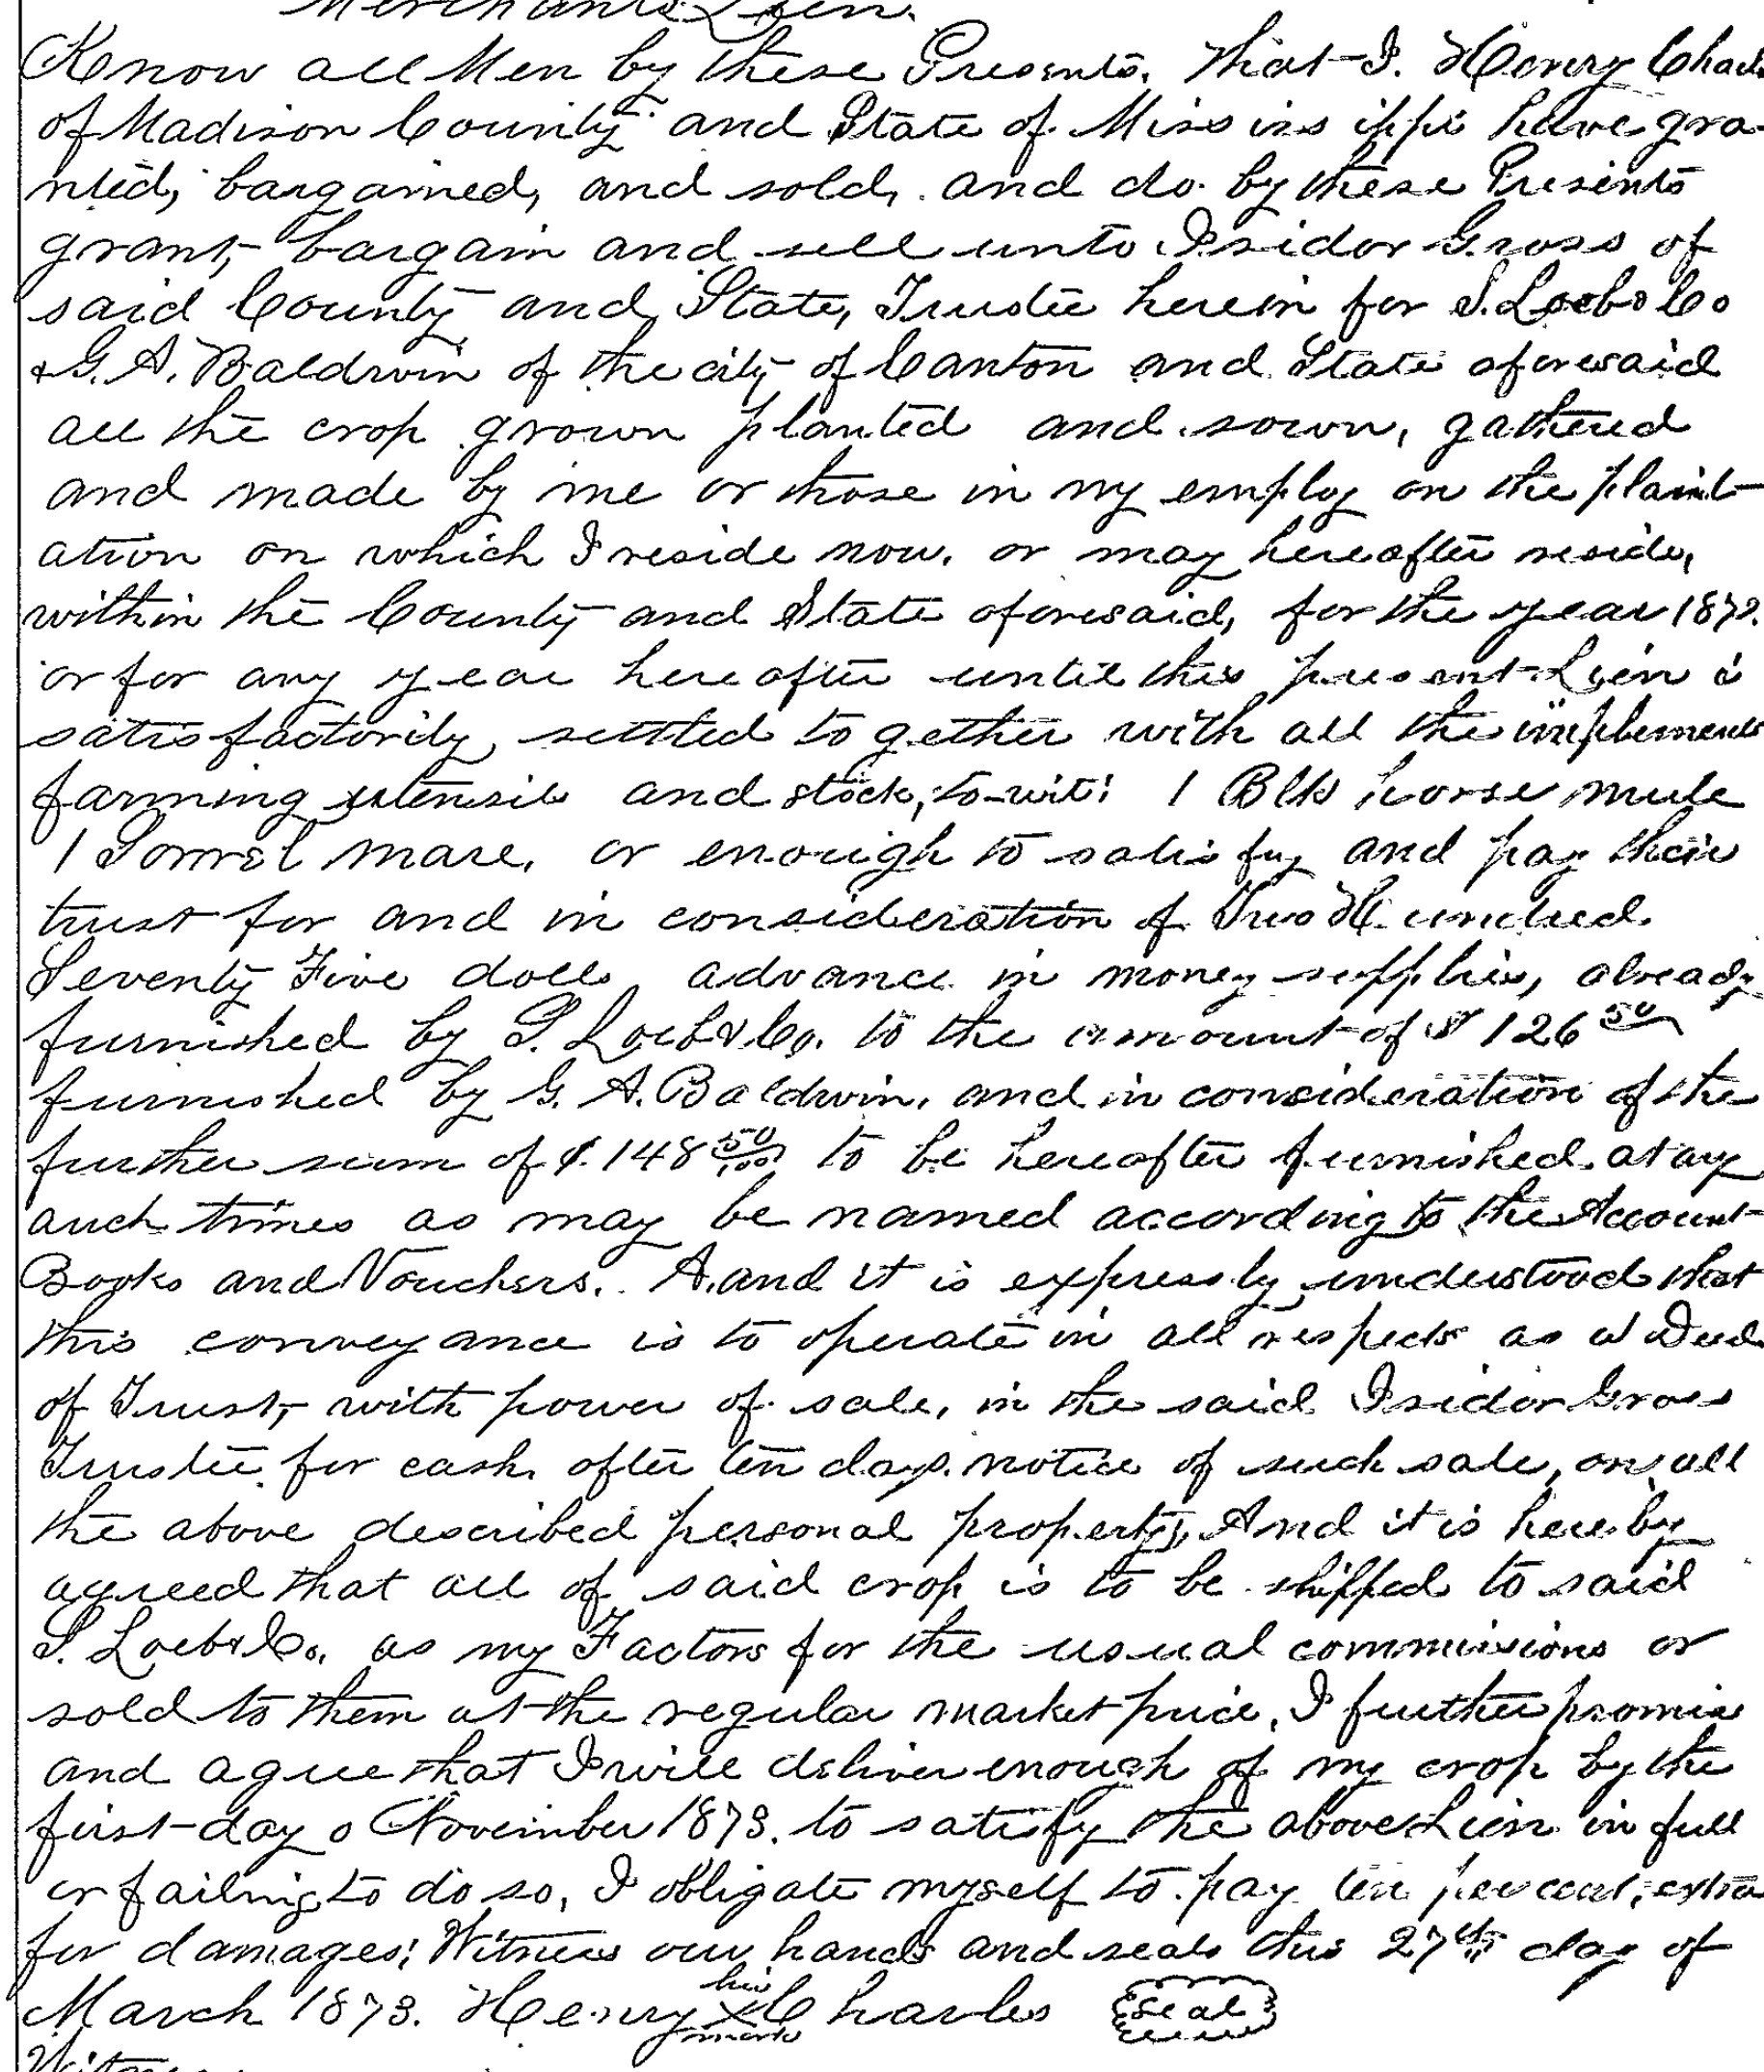 Merchants Lien.
Know all Men by these Presents, That I. Henry Chas
of Madison County and State of Mississippi have gra-
nted, bargained, and sold, and do by these Presents
grant, bargain and sell unto Isidor Gross of
said County and State, Trustee herein for S. Loeb & Co
& G. A. Baldwin of the city of Canton and State aforesaid
all the crop grown planted and sown, gathered
and made by me or those in my employ on the plant-
ation on which I reside now, or may hereafter reside,
within the County and State aforesaid, for the year 1873.
or for any year hereafter until this present Lien is
satisfactorily settled together with all the implements
farming utensils and stock, to-wit: 1 Blk horse mule
1 Sorrel mare, or enough to satisfy and pay their
trust for and in consideration of Two Hundred
Seventy Five dolls advance in money supplies, already
furnished by S. Loeb & Co. to the amount of $126 50
furnished by G. A. Baldwin, and in consideration of the
further sum of $148 50/100 to be hereafter furnished at any
such times as may be named according to the Account
Books and Vouchers. A. and it is expressly understood that
this conveyance is to operate in all respects as a Deed
of Trust, with power of sale, in the said Isidor Gross
Trustee for cash, after ten days notice of such sale, on all
the above described personal property, And it is hereby
agreed that all of said crop is to be shipped to said
S. Loeb & Co. as my Factors for the usual commissions or
sold to them at the regular market price, I further promise
and agree that I will deliver enough of my crop by the
first-day o November 1873. to satisfy the above Lien in full
or failing to do so, I obligate myself to pay ten per cent, extra
for damages; Witness our hands and seals this 27th day of
March 1873. Henry his x mark Charles Seal
Witness